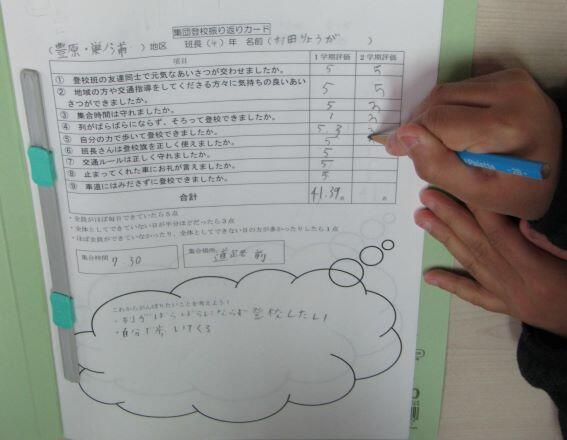 集団登校振り返りカード
(豊原・巣ノ浦)地区 班長(4)年 名前(村田りょうが)
項目 1学期評価 2学期評価
① 登校班の友達同士で元気なあいさつが交わせましたか。 5 5
② 地域の方や交通指導をしてくださる方々に気持ちの良いあいさつができましたか。 5 5
③ 集合時間は守れましたか。 5 3
④ 列がばらばらにならず、そろって登校できましたか。 1 3
⑤ 自分の力で歩いて登校できましたか。 5.3
⑥ 班長さんは登校旗を正しく使えましたか。 5
⑦ 交通ルールは正しく守れましたか。 5
⑧ 止まってくれた車にお礼が言えましたか。 5
⑨ 車道にはみださずに登校できましたか。 5
合計 41.39点 点
・全員がほぼ毎日できていたら5点
・全体としてできていない日が半分ほどだったら3点
・ほぼ全員ができていなかったり、全体としてできない日の方が多かったりしたら1点
集合時間 7.30
集合場所 前
これからがんばりたいことを考えよう！
・列がばらばらにならず登校したい
・自分で歩
Palette 2B